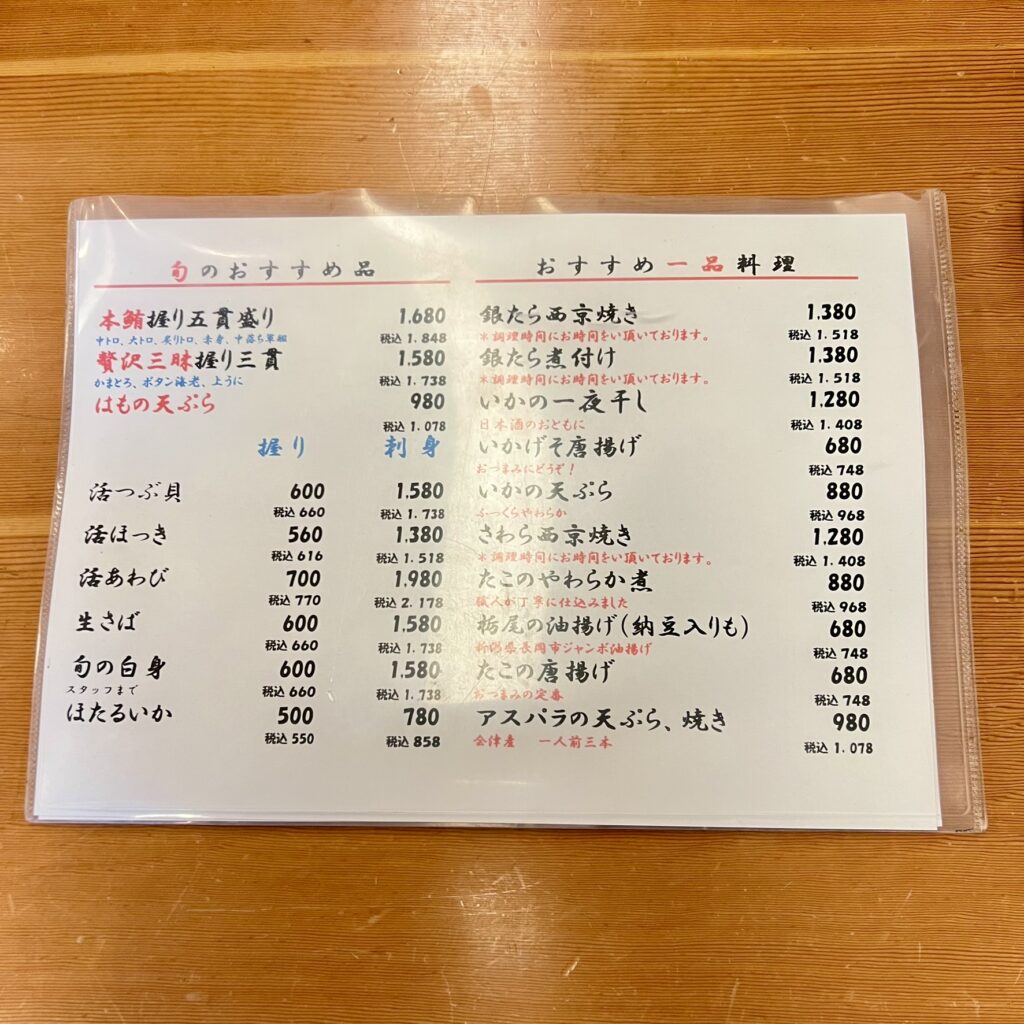 旬のおすすめ品
本鮪握り五貫盛り 1.680
中トロ、大トロ、炙りトロ、赤身、中落ち軍艦 税込 1.848
贅沢三昧握り三貫 1.580
かまとろ、ボタン海老、上うに 税込 1.738
はもの天ぷら 980
税込 1.078
握り 刺身
活つぶ貝 600 1.580
税込 660 税込 1.738
活ほっき 560 1.380
税込 616 税込 1.518
活あわび 700 1.980
税込 770 税込 2.178
生さば 600 1.580
税込 660 税込 1.738
旬の白身 600 1.580
スタッフまで 税込 660 税込 1.738
ほたるいか 500 780
税込 550 税込 858
おすすめ一品料理
銀たら西京焼き 1.380
*調理時間にお時間をい頂いております。 税込 1.518
銀たら煮付け 1.380
*調理時間にお時間をい頂いております。 税込 1.518
いかの一夜干し 1.280
日本酒のおともに 税込 1.408
いかげそ唐揚げ 680
おつまみにどうぞ! 税込 748
いかの天ぷら 880
ふっくらやわらか 税込 968
さわら西京焼き 1.280
*調理時間にお時間をい頂いております。 税込 1.408
たこのやわらか煮 880
職人が丁寧に仕込みました 税込 968
栃尾の油揚げ(納豆入りも) 680
新潟県長岡市ジャンボ油揚げ 税込 748
たこの唐揚げ 680
おつまみの定番 税込 748
アスパラの天ぷら、焼き 980
会津産 一人前三本 税込 1.078